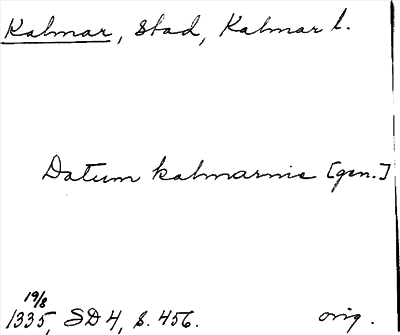 Kalmar, Stad, Kalmar l.
Datum kalmarnie [gen.]
19/8
1335, SD 4, s. 456. orig.